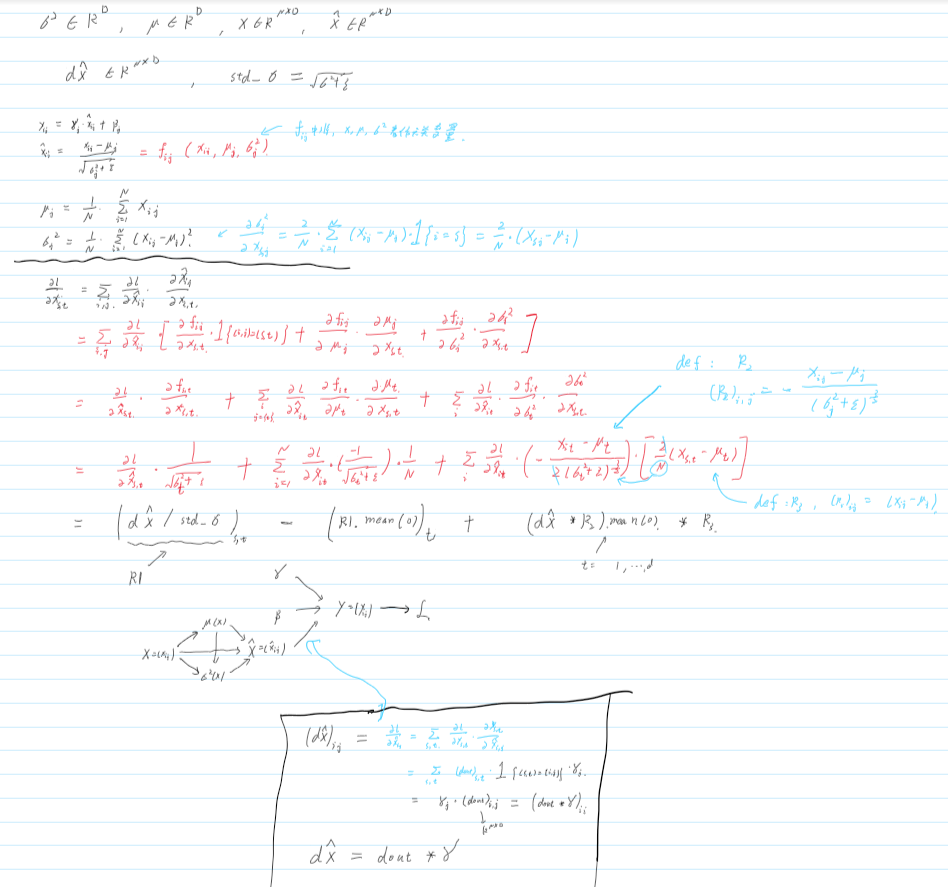 σ² ∈ R^D , μ ∈ R^D , x ∈ R^{N×D} , x̂ ∈ R^{N×D}
dx̂ ∈ R^{N×D} , std_σ = √(σ²+ε)
y_{ij} = γ_j · x̂_{ij} + β_j
x̂_{ij} = (x_{ij} - μ_j) / √(σ_j²+ε) = f_{ij} (x_{ij}, μ_j, σ_j²)
f_{ij} 中, x, μ, σ² 变量.
μ_j = 1/N · Σ_{i=1}^N x_{ij}
σ_j² = 1/N · Σ_{i=1}^N (x_{ij} - μ_j)². ∂σ_j²/∂x_{sj} = 2/N · Σ_{i=1}^N (x_{ij} - μ_j) · 1{i=s} = 2/N · (x_{sj} - μ_j)
∂l/∂x_{s,t} = Σ_{i,j} ∂l/∂x̂_{ij} · ∂x̂_{ij}/∂x_{s,t}
= Σ_{i,j} ∂l/∂x̂_{ij} · [ ∂f_{ij}/∂x_{s,t} · 1{(i,j)=(s,t)} + ∂f_{ij}/∂μ_j · ∂μ_j/∂x_{s,t} + ∂f_{ij}/∂σ_j² · ∂σ_j²/∂x_{s,t} ]
def : R₂
(R₂)_{i,j} = - (x_{ij} - μ_j) / (σ_j²+ε)^{3/2}
= ∂l/∂x̂_{s,t} · ∂f_{s,t}/∂x_{s,t} + Σ_i ∂l/∂x̂_{i,t} · ∂f_{i,t}/∂μ_t · ∂μ_t/∂x_{s,t} + Σ_i ∂l/∂x̂_{i,t} · ∂f_{i,t}/∂σ_t² · ∂σ_t²/∂x_{s,t}
= ∂l/∂x̂_{s,t} · 1/√(σ_t²+ε) + Σ_{i=1}^N ∂l/∂x̂_{i,t} · (-1/√(σ_t²+ε)) · 1/N + Σ_i ∂l/∂x̂_{i,t} · (- (x_{i,t} - μ_t) / 2(σ_t²+ε)^{3/2}) · [2/N (x_{s,t} - μ_t)]
def : R₃, = (x_{ij} - μ_j)
= (dx̂ / std_σ)_{s,t} - (R1.mean(0))_t + (dx̂ * R₂).mean(0) * R₃
R1
t = 1, ..., d
γ
β
Y=(y_{ij}) → L
μ(x)
X=(x_{ij})
X̂=(x̂_{ij})
σ²(x)
(dx̂)_{ij} = ∂l/∂x̂_{ij} = Σ_{s,t} ∂l/∂y_{s,t} · ∂y_{s,t}/∂x̂_{ij}
= Σ_{s,t} (dout)_{s,t} · 1{(s,t)=(i,j)} · γ_j
= γ_j · (dout)_{i,j} = (dout * γ)_{ij}
R^{N×D}
dx̂ = dout * γ